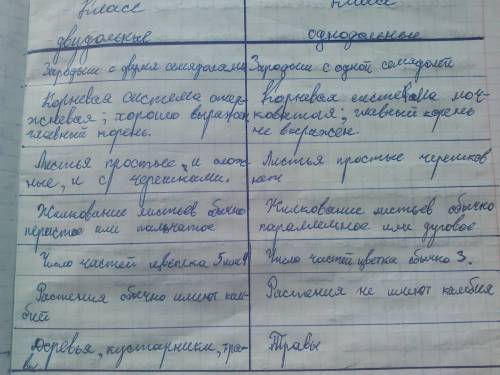 Класс
двудольные
Зародыш с двумя семядолями
Корневая система стер-
жневая; хорошо выражен
главный корень.
Листья простые и слож-
ные, и с черешками.
Жилкование листьев обычно
перистое или пальчатое
Число частей цветка 5 или 4
Растения обычно имеют кам-
бий
Деревья, кустарники, тра-
Класс
однодольные
Зародыш с одной семядолей
Корневая система моч-
коватая; главный корень
не выражен.
Листья простые черешков
нет
Жилкование листьев обычно
параллельное или дуговое
Число частей цветка обычно 3.
Растения не имеют камбия
Травы